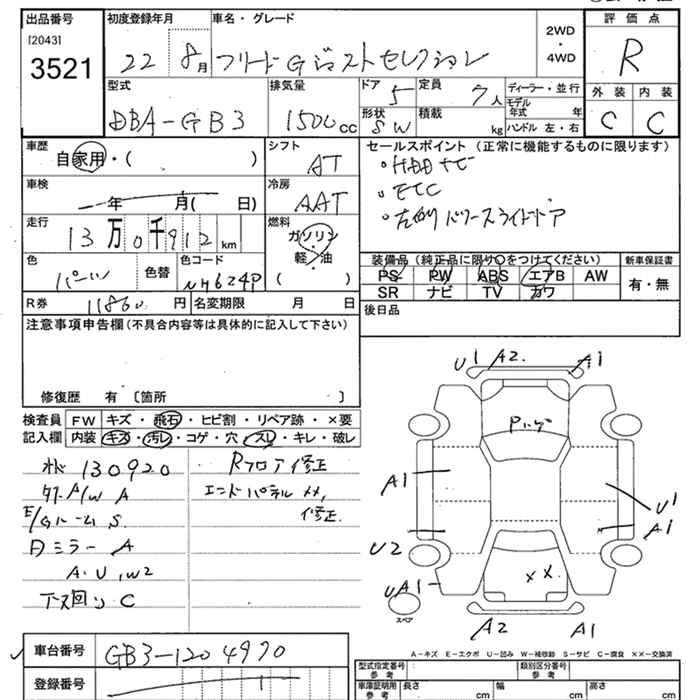 出品番号
[2043]
3521
初度登録年月
22 8月
車名・グレード
フリード G ジャストセレクション
2WD
・
4WD
評価点
R
外装 内装
C C
型式
DBA-GB3
排気量
1500cc
ドア
5
定員
7人
形状
SW
積載
kg
ディーラー・並行
モデル
年式 年
ハンドル 左・右
車歴
自家用・( )
シフト
AT
車検
年 月( 日)
冷房
AAT
走行
13万0千912 km
燃料
ガソリン
軽・油
( )
色
パール
色替
色コード
NH624P
R券
11860円
名変期限 月 日
セールスポイント(正常に機能するものに限ります)
・HDDナビ
・ETC
・左側パワースライドドア
装備品(純正品に限り○をつけてください)
PS PW ABS エアB AW
SR ナビ TV カワ
新車保証書
有・無
後日品
注意事項申告欄(不具合内容等は具体的に記入して下さい)
修復歴 有 〔箇所 〕
検査員
記入欄
FW キズ・飛石・ヒビ割・リペア跡・×要
内装 キズ・汚レ・コゲ・穴・スレ・キレ・破レ
130920
A/W A
S
ミラー A
A.U,W2
下回り C
Rフロア修正
エンドパネル××,
修正
U1 A2 A1
A1
U1
A1
U2
UA1
×× 
A2 A1
スペア
A-キズ E-エクボ U-凹み W-補修跡 S-サビ C-腐食 ××-交換済
車台番号
GB3-1204970
登録番号
型式指定番号
参考
類別区分番号
参考
車庫証明用
参考
長さ cm
幅 cm
高さ cm